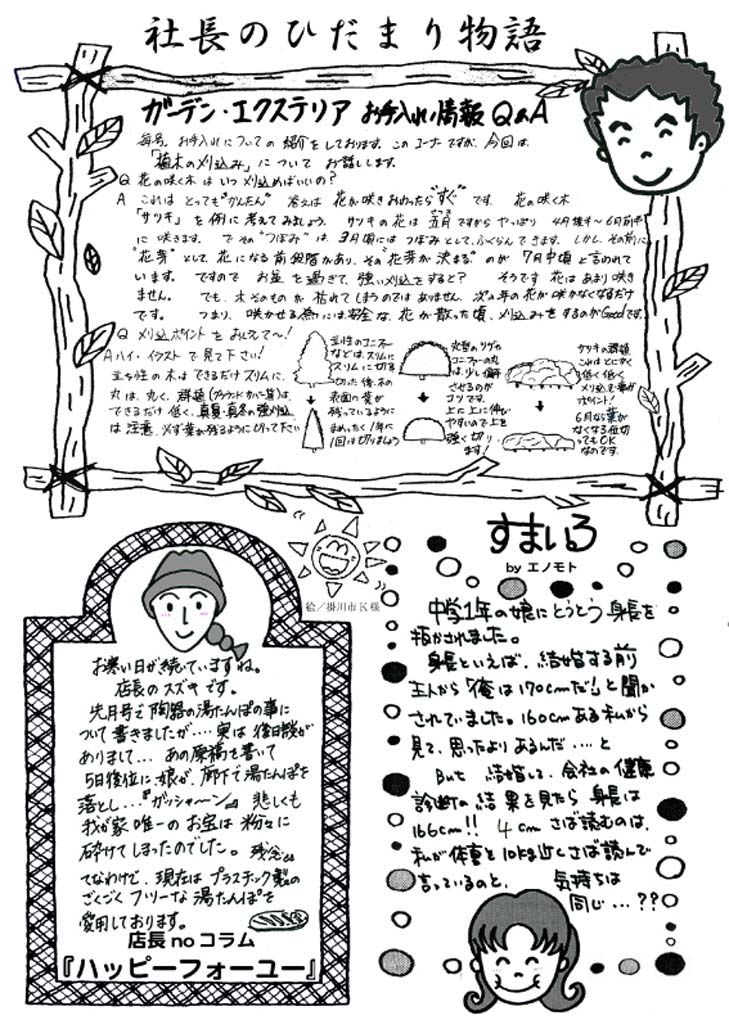 社長のひだまり物語
ガーデン・エクステリア お手入れ情報 Q&A
毎号、お手入れについての紹介をしております。このコーナーですが、今回は、
「植木の刈込み」について お話しします。
Q 花の咲く木は いつ 刈込めばいいの?
A これは とっても“かんたん” 答えは 花が咲きおわったら“すぐ”です。 花の咲く木
「サツキ」を例に考えてみましょう。 サツキの花は 五月ですから やっぱり 4月後半〜6月前半
に 咲きます。 で その“つぼみ”は、3月頃には つぼみとして、ふくらんできます。しかし、その前に
“花芽”として、花になる前段階があり、その“花芽が決まる”のが 7月中頃と言われて
います。 ですので お盆を過ぎて、強い刈込をすると? そうです 花はあまり咲き
ません。 でも、木そのものが 枯れてしまうのではありません、次の年の花が咲かなくなるだけ
です。 つまり、咲かせる為には安全な、花が散った頃、刈込みをするのがGoodです。
Q 刈込ポイントをおしえて〜!
A ハイ・イラストで見て下さい!
立ち性の木は できるだけスリムに、
丸は、丸く、群植(グランドカバー等)は、
できるだけ低く、真夏・真冬の強刈込
は注意、必ず葉が残るように切って下さい
立性のコニファー
などは、スリムに
スリムに切る
切った後、木の
表面に葉が
残っているように
まめったく1年に
1回は切りましょう
コニファーの丸
は、少し偏平
させるのが
コツです。
上に上に伸び
やすいので上を
強く切り
ます!
サツキの群植
これはとにかく
低く低く
刈り込む事が
ポイント!
6月なら葉が
なくなる位切
ってもOK
なのです。
絵/掛川市K様
お寒い日が続いていますね。
店長のスズキです。
先月号で陶器の湯たんぽの事に
ついて書きましたが‥‥実は後日談が
ありまして… あの原稿を書いて
5日後位に、娘が、廊下で湯たんぽを
落とし…『ガッシャ〜ン』 悲しくも
我が家唯一のお宝は粉々に
砕けてしまったのでした。残念
てなわけで、現在はプラスチック製の
ごくごくフツーな湯たんぽを
愛用しております。
店長noコラム
『ハッピーフォーユー』
すまいろ
by エノモト
中学1年の娘にとうとう身長を
抜かされました。
身長といえば、結婚する前
主人から「俺は170cmだ!」と聞か
されていました。160cmある私から
見て、思ったよりあるんだ‥‥と
But 結婚して、会社の健康
診断の結果を見たら身長は
166cm!! 4cmさば読むのは、
私が体重を10kg近くさば読んで
言っているのと、 気持ちは
同じ…??